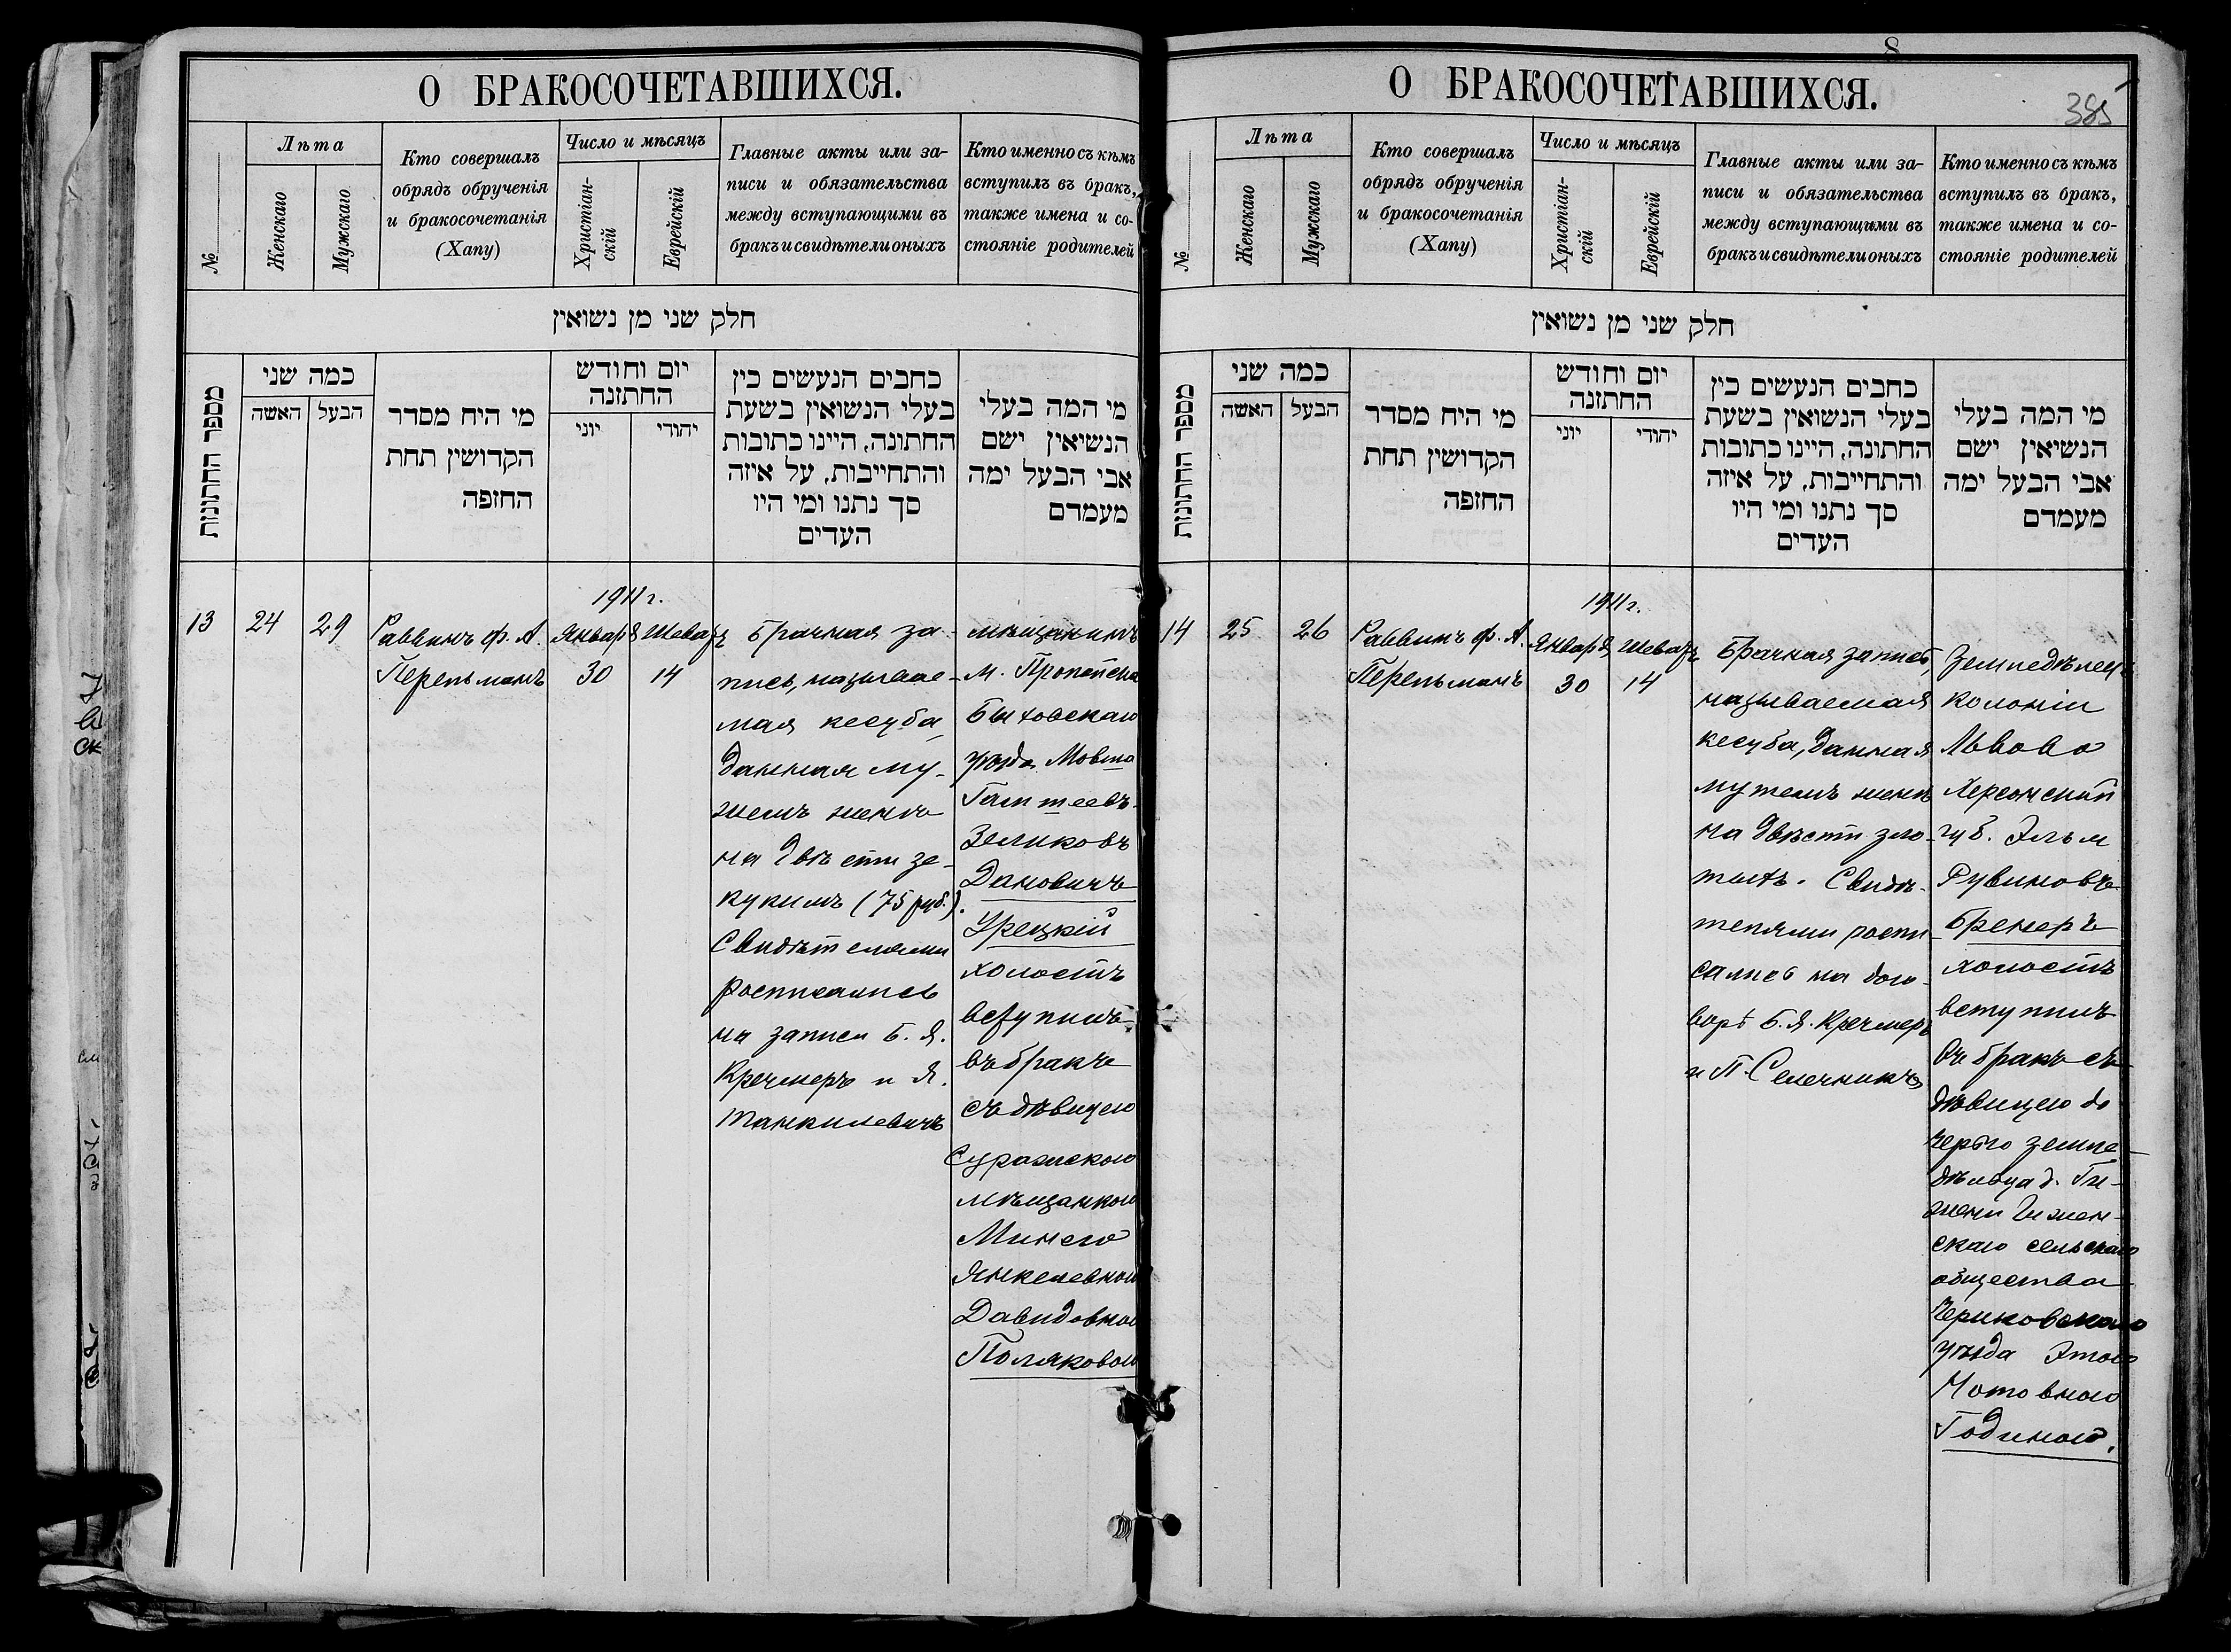 О БРАКОСОЧЕТАВШИХСЯ.
№
Лѣта
Женскаго
Мужскаго
Кто совершалъ
обрядъ обрученія
и бракосочетанія
(Хапу)
Число и мѣсяцъ
Христіан-
скій
Еврейскій
Главные акты или за-
писи и обязательства
между вступающими въ
бракъ и свидѣтели оныхъ
Кто именно съ кѣмъ
вступилъ въ бракъ,
также имена и со-
стояніе родителей
חלק שני מן נשואין
מספר החתונות
כמה שני
האשה
הבעל
מי היח מסדר
הקדושין תחת
החזפה
יום וחודש
החתזנה
יוני
יהודי
כחבים הנעשים כין
בעלי הנשואין בשעת
החתונה, היינו כתובות
והתחייבות, על איזה
סך נתנו ומי היו
העדים
מי המה בעלי
הנשיאין ישם
אבי הבעל ימה
מעמדם
13
24
29
Раввинъ Ф. А.
Перельманъ
1911 г.
Января
30
Шевать
14
Брачная за-
пись, называе-
мая кесуба,
данная му-
жемъ женѣ
на двѣсти зе-
кукимъ (75 руб.).
Свидѣтелями
росписались
на записи Б. Я.
Кречмеръ и Я.
Танкилевичъ
мѣщанинъ
м. Пропойска
Быховскаго
уѣзда Мовша
Зеликовъ
Дановичъ
Урецкій
холостъ
вступилъ
въ бракъ
съ дѣвицею
Суражскою
мѣщанкою
Минею
Янкелевною
Давидовною
Поляковою
8
385
О БРАКОСОЧЕТАВШИХСЯ.
№
Лѣта
Женскаго
Мужскаго
Кто совершалъ
обрядъ обрученія
и бракосочетанія
(Хапу)
Число и мѣсяцъ
Христіан-
скій
Еврейскій
Главные акты или за-
писи и обязательства
между вступающими въ
бракъ и свидѣтели оныхъ
Кто именно съ кѣмъ
вступилъ въ бракъ,
также имена и со-
стояніе родителей
חלק שני מן נשואין
מספר החתונות
כמה שני
האשה
הבעל
מי היח מסדר
הקדושין תחת
החזפה
יום וחודש
החתזנה
יוני
יהודי
כחבים הנעשים כין
בעלי הנשואין בשעת
החתונה, היינו כתובות
והתחייבות, על איזה
סך נתנו ומי היו
העדים
מי המה בעלי
הנשיאין ישם
אבי הבעל ימה
מעמדם
14
25
26
Раввинъ Ф. А.
Перельманъ
1911 г.
Января
30
Шевать
14
Брачная запись,
называемая
кесуба, данная
мужемъ женѣ
на двѣсти зло-
тыхъ. Свидѣ-
телями роспи-
сались на дого-
ворѣ Б. Я. Кречмеръ
и П. Селечникъ
Земледѣлецъ
колоніи
Львово
Херсонской
губ. Эльм
Рувиновъ
Бренеръ
холостъ
вступилъ
въ бракъ съ
дѣвицею до-
черью земле-
дѣльца д.
скаго сельскаго
общества
Чериковскаго
уѣзда Этою
Мотовною
Годиною.